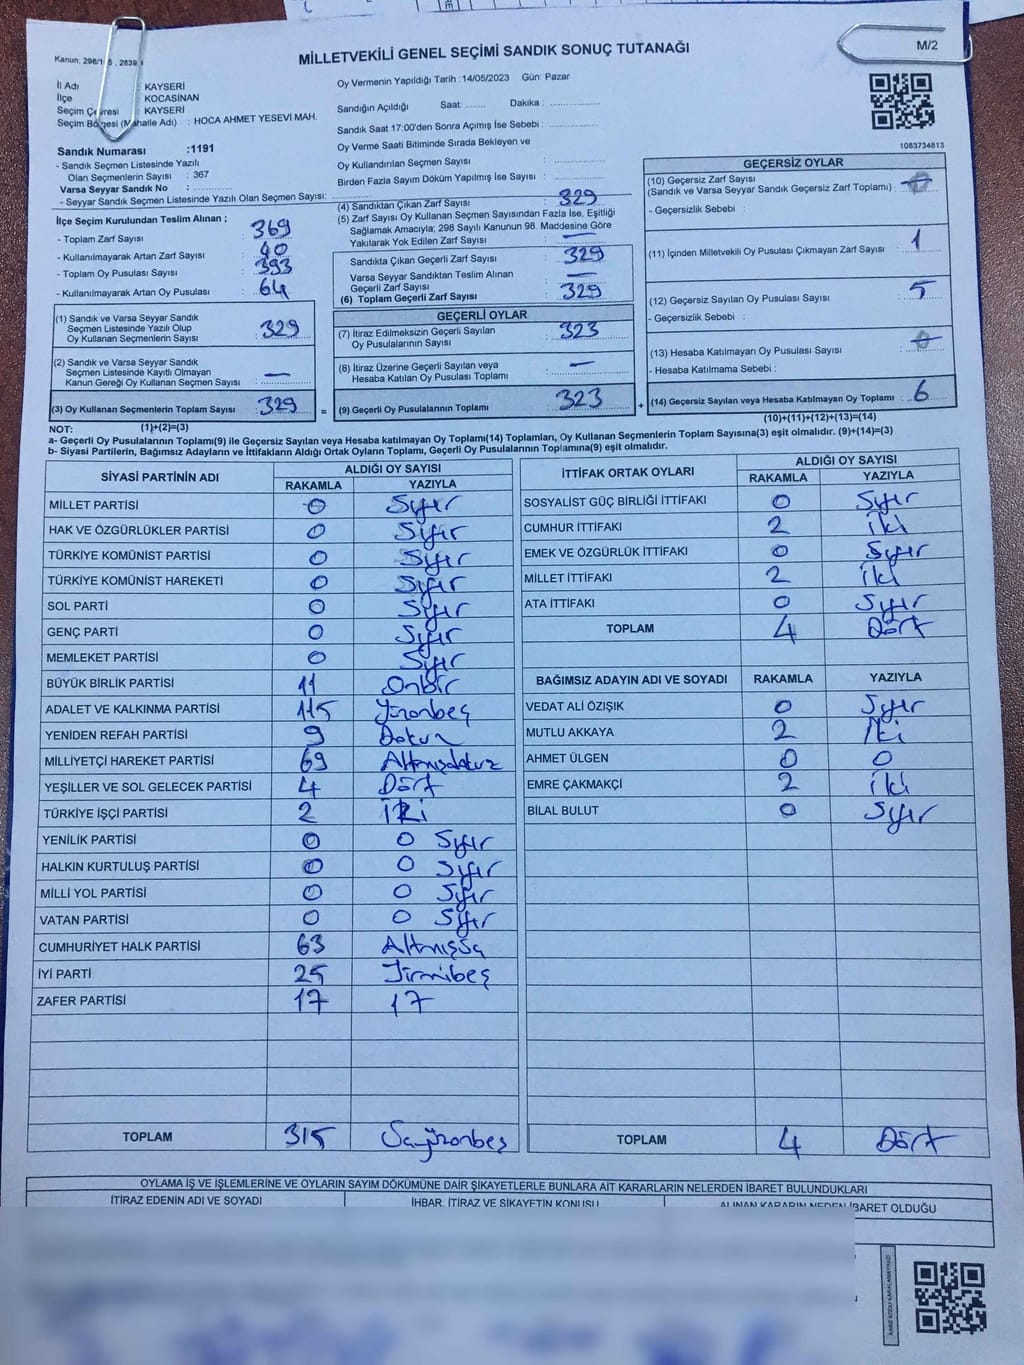 MİLLETVEKİLİ GENEL SEÇİMİ SANDIK SONUÇ TUTANAĞI
M/2
Kanun: 298/1 , 2839
İl Adı : KAYSERİ
İlçe : KOCASİNAN
Seçim Çevresi : KAYSERİ
Seçim Bölgesi (Mahalle Adı) : HOCA AHMET YESEVİ MAH.
Sandık Numarası :1191
- Sandık Seçmen Listesinde Yazılı
Olan Seçmenlerin Sayısı : 367
Varsa Seyyar Sandık No :
- Seyyar Sandık Seçmen Listesinde Yazılı Olan Seçmen Sayısı:
Oy Vermenin Yapıldığı Tarih : 14/05/2023 Gün: Pazar
Sandığın Açıldığı Saat: Dakika :
Sandık Saat 17:00'den Sonra Açımış İse Sebebi :
Oy Verme Saati Bitiminde Sırada Bekleyen ve
Oy Kullandırılan Seçmen Sayısı :
Birden Fazla Sayım Döküm Yapılmış İse Sayısı :
1083734813
İlçe Seçim Kurulundan Teslim Alınan ;
- Toplam Zarf Sayısı : 369
- Kullanılmayarak Artan Zarf Sayısı : 40
- Toplam Oy Pusulası Sayısı : 393
- Kullanılmayarak Artan Oy Pusulası : 64
(1) Sandık ve Varsa Seyyar Sandık
Seçmen Listesinde Yazılı Olup
Oy Kullanan Seçmenlerin Sayısı : 329
(2) Sandık ve Varsa Seyyar Sandık
Seçmen Listesinde Kayıtlı Olmayan
Kanun Gereği Oy Kullanan Seçmen Sayısı : —
(3) Oy Kullanan Seçmenlerin Toplam Sayısı : 329 =
(1)+(2)=(3)
(4) Sandıktan Çıkan Zarf Sayısı : 329
(5) Zarf Sayısı Oy Kullanan Seçmen Sayısından Fazla İse, Eşitliği
Sağlamak Amacıyla; 298 Sayılı Kanunun 98. Maddesine Göre
Yakılarak Yok Edilen Zarf Sayısı : —
Sandıkta Çıkan Geçerli Zarf Sayısı : 329
Varsa Seyyar Sandıktan Teslim Alınan
Geçerli Zarf Sayısı : —
(6) Toplam Geçerli Zarf Sayısı : 329
GEÇERLİ OYLAR
(7) İtiraz Edilmeksizin Geçerli Sayılan
Oy Pusulalarının Sayısı : 323
(8) İtiraz Üzerine Geçerli Sayılan veya
Hesaba Katılan Oy Pusulası Toplamı : —
(9) Geçerli Oy Pusulalarının Toplamı : 323 +
GEÇERSİZ OYLAR
(10) Geçersiz Zarf Sayısı
(Sandık ve Varsa Seyyar Sandık Geçersiz Zarf Toplamı) : 0
- Geçersizlik Sebebi :
(11) İçinden Milletvekili Oy Pusulası Çıkmayan Zarf Sayısı : 1
(12) Geçersiz Sayılan Oy Pusulası Sayısı : 5
- Geçersizlik Sebebi :
(13) Hesaba Katılmayan Oy Pusulası Sayısı : 0
- Hesaba Katılmama Sebebi :
(14) Geçersiz Sayılan veya Hesaba Katılmayan Oy Toplamı : 6
(10)+(11)+(12)+(13)=(14)
NOT:
a- Geçerli Oy Pusulalarının Toplamı(9) ile Geçersiz Sayılan veya Hesaba katılmayan Oy Toplamı(14) Toplamları, Oy Kullanan Seçmenlerin Toplam Sayısına(3) eşit olmalıdır. (9)+(14)=(3)
b- Siyasi Partilerin, Bağımsız Adayların ve İttifakların Aldığı Ortak Oyların Toplamı, Geçerli Oy Pusulalarının Toplamına(9) eşit olmalıdır.
SİYASİ PARTİNİN ADI ALDIĞI OY SAYISI
RAKAMLA YAZIYLA
MİLLET PARTİSİ 0 Sıfır
HAK VE ÖZGÜRLÜKLER PARTİSİ 0 Sıfır
TÜRKİYE KOMÜNİST PARTİSİ 0 Sıfır
TÜRKİYE KOMÜNİST HAREKETİ 0 Sıfır
SOL PARTİ 0 Sıfır
GENÇ PARTİ 0 Sıfır
MEMLEKET PARTİSİ 0 Sıfır
BÜYÜK BİRLİK PARTİSİ 11 Onbir
ADALET VE KALKINMA PARTİSİ 115 Yüzonbeş
YENİDEN REFAH PARTİSİ 9 Dokuz
MİLLİYETÇİ HAREKET PARTİSİ 69 Altmışdokuz
YEŞİLLER VE SOL GELECEK PARTİSİ 4 Dört
TÜRKİYE İŞÇİ PARTİSİ 2 İki
YENİLİK PARTİSİ 0 0 Sıfır
HALKIN KURTULUŞ PARTİSİ 0 0 Sıfır
MİLLİ YOL PARTİSİ 0 0 Sıfır
VATAN PARTİSİ 0 0 Sıfır
CUMHURİYET HALK PARTİSİ 63 Altmışüç
İYİ PARTİ 25 Yirmibeş
ZAFER PARTİSİ 17 17
TOPLAM 315
İTTİFAK ORTAK OYLARI ALDIĞI OY SAYISI
RAKAMLA YAZIYLA
SOSYALİST GÜÇ BİRLİĞİ İTTİFAKI 0 Sıfır
CUMHUR İTTİFAKI 2 iki
EMEK VE ÖZGÜRLÜK İTTİFAKI 0 Sıfır
MİLLET İTTİFAKI 2 iki
ATA İTTİFAKI 0 Sıfır
TOPLAM 4 Dört
BAĞIMSIZ ADAYIN ADI VE SOYADI RAKAMLA YAZIYLA
VEDAT ALİ ÖZIŞIK 0 Sıfır
MUTLU AKKAYA 2 İki
AHMET ÜLGEN 0 0
EMRE ÇAKMAKÇİ 2 iki
BİLAL BULUT 0 Sıfır
TOPLAM 4 Dört
OYLAMA İŞ VE İŞLEMLERİNE VE OYLARIN SAYIM DÖKÜMÜNE DAİR ŞİKAYETLERLE BUNLARA AİT KARARLARIN NELERDEN İBARET BULUNDUKLARI
İTİRAZ EDENİN ADI VE SOYADI İHBAR, İTİRAZ VE ŞİKAYETİN KONUSU ALINAN KARARIN NEDEN İBARET OLDUĞU